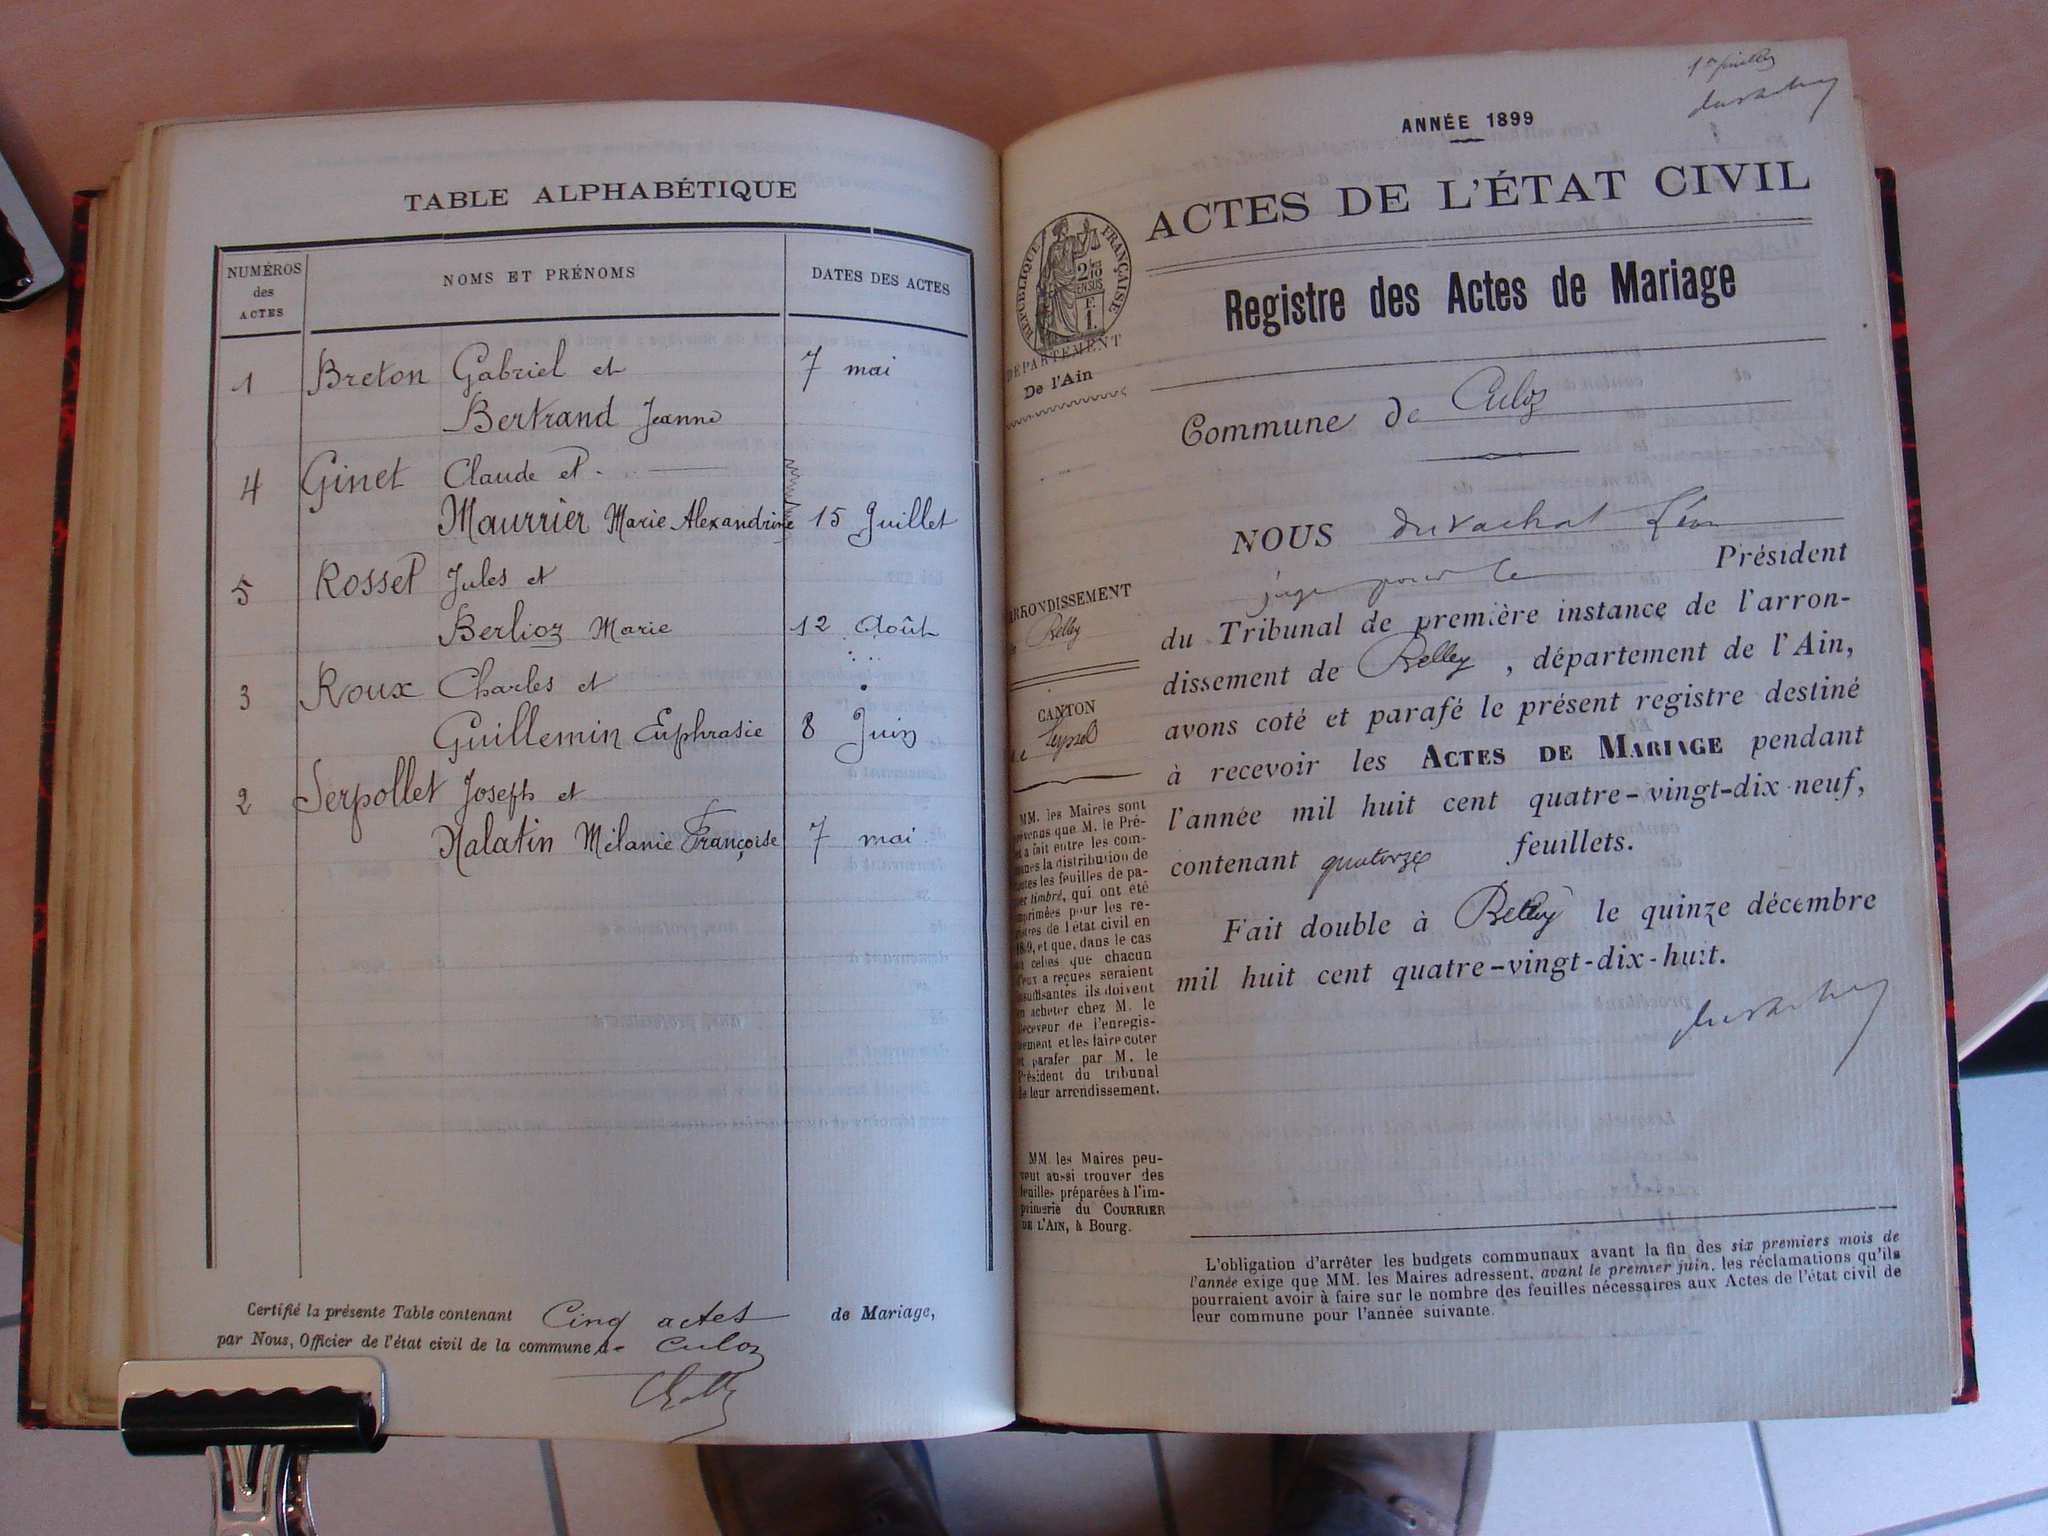 TABLE ALPHABÉTIQUE
NUMÉROS des ACTES
NOMS ET PRÉNOMS
DATES DES ACTES
1 Breton Gabriel et 7 mai
Bertrand Jeanne
4 Ginet Claude et
Maurrier Marie Alexandrine 15 Juillet
5 Rosset Jules et
Berlioz Marie 12 Août
3 Roux Charles et
Guillemin Euphrasie 8 Juin
2 Serpollet Joseph et
Malatin Mélanie Françoise 7 mai
Certifié la présente Table contenant Cinq actes de Mariage,
par Nous, Officier de l'état civil de la commune de Culoz
1er feuillet
ANNÉE 1899
ACTES DE L'ÉTAT CIVIL
RÉPUBLIQUE FRANÇAISE
DÉPARTEMENT
De l'Ain
Registre des Actes de Mariage
Commune de Culoz
NOUS Duvachat Léon
juge pour le Président
du Tribunal de première instance de l'arron-
dissement de Belley, département de l'Ain,
avons coté et parafé le présent registre destiné
à recevoir les ACTES DE MARIAGE pendant
l'année mil huit cent quatre-vingt-dix-neuf,
contenant quatorze feuillets.
Fait double à Belley le quinze décembre
mil huit cent quatre-vingt-dix-huit.
ARRONDISSEMENT
Belley
CANTON
de Seyssel
MM. les Maires sont
prévenus que M. le Pré-
fet a fait entre les com-
munes la distribution de
toutes les feuilles de pa-
pier timbré, qui ont été
imprimées pour les re-
gistres de l'état civil en
1899, et que, dans le cas
où celles que chacun
d'eux a reçues seraient
insuffisantes ils doivent
en acheter chez M. le
Receveur de l'enregis-
trement et les faire coter
et parafer par M. le
Président du tribunal
de leur arrondissement.
MM. les Maires peu-
vent aussi trouver des
feuilles préparées à l'im-
primerie du COURRIER
DE L'AIN, à Bourg.
L'obligation d'arrêter les budgets communaux avant la fin des six premiers mois de
l'année exige que MM. les Maires adressent, avant le premier juin, les réclamations qu'ils
pourraient avoir à faire sur le nombre des feuilles nécessaires aux Actes de l'état civil de
leur commune pour l'année suivante.